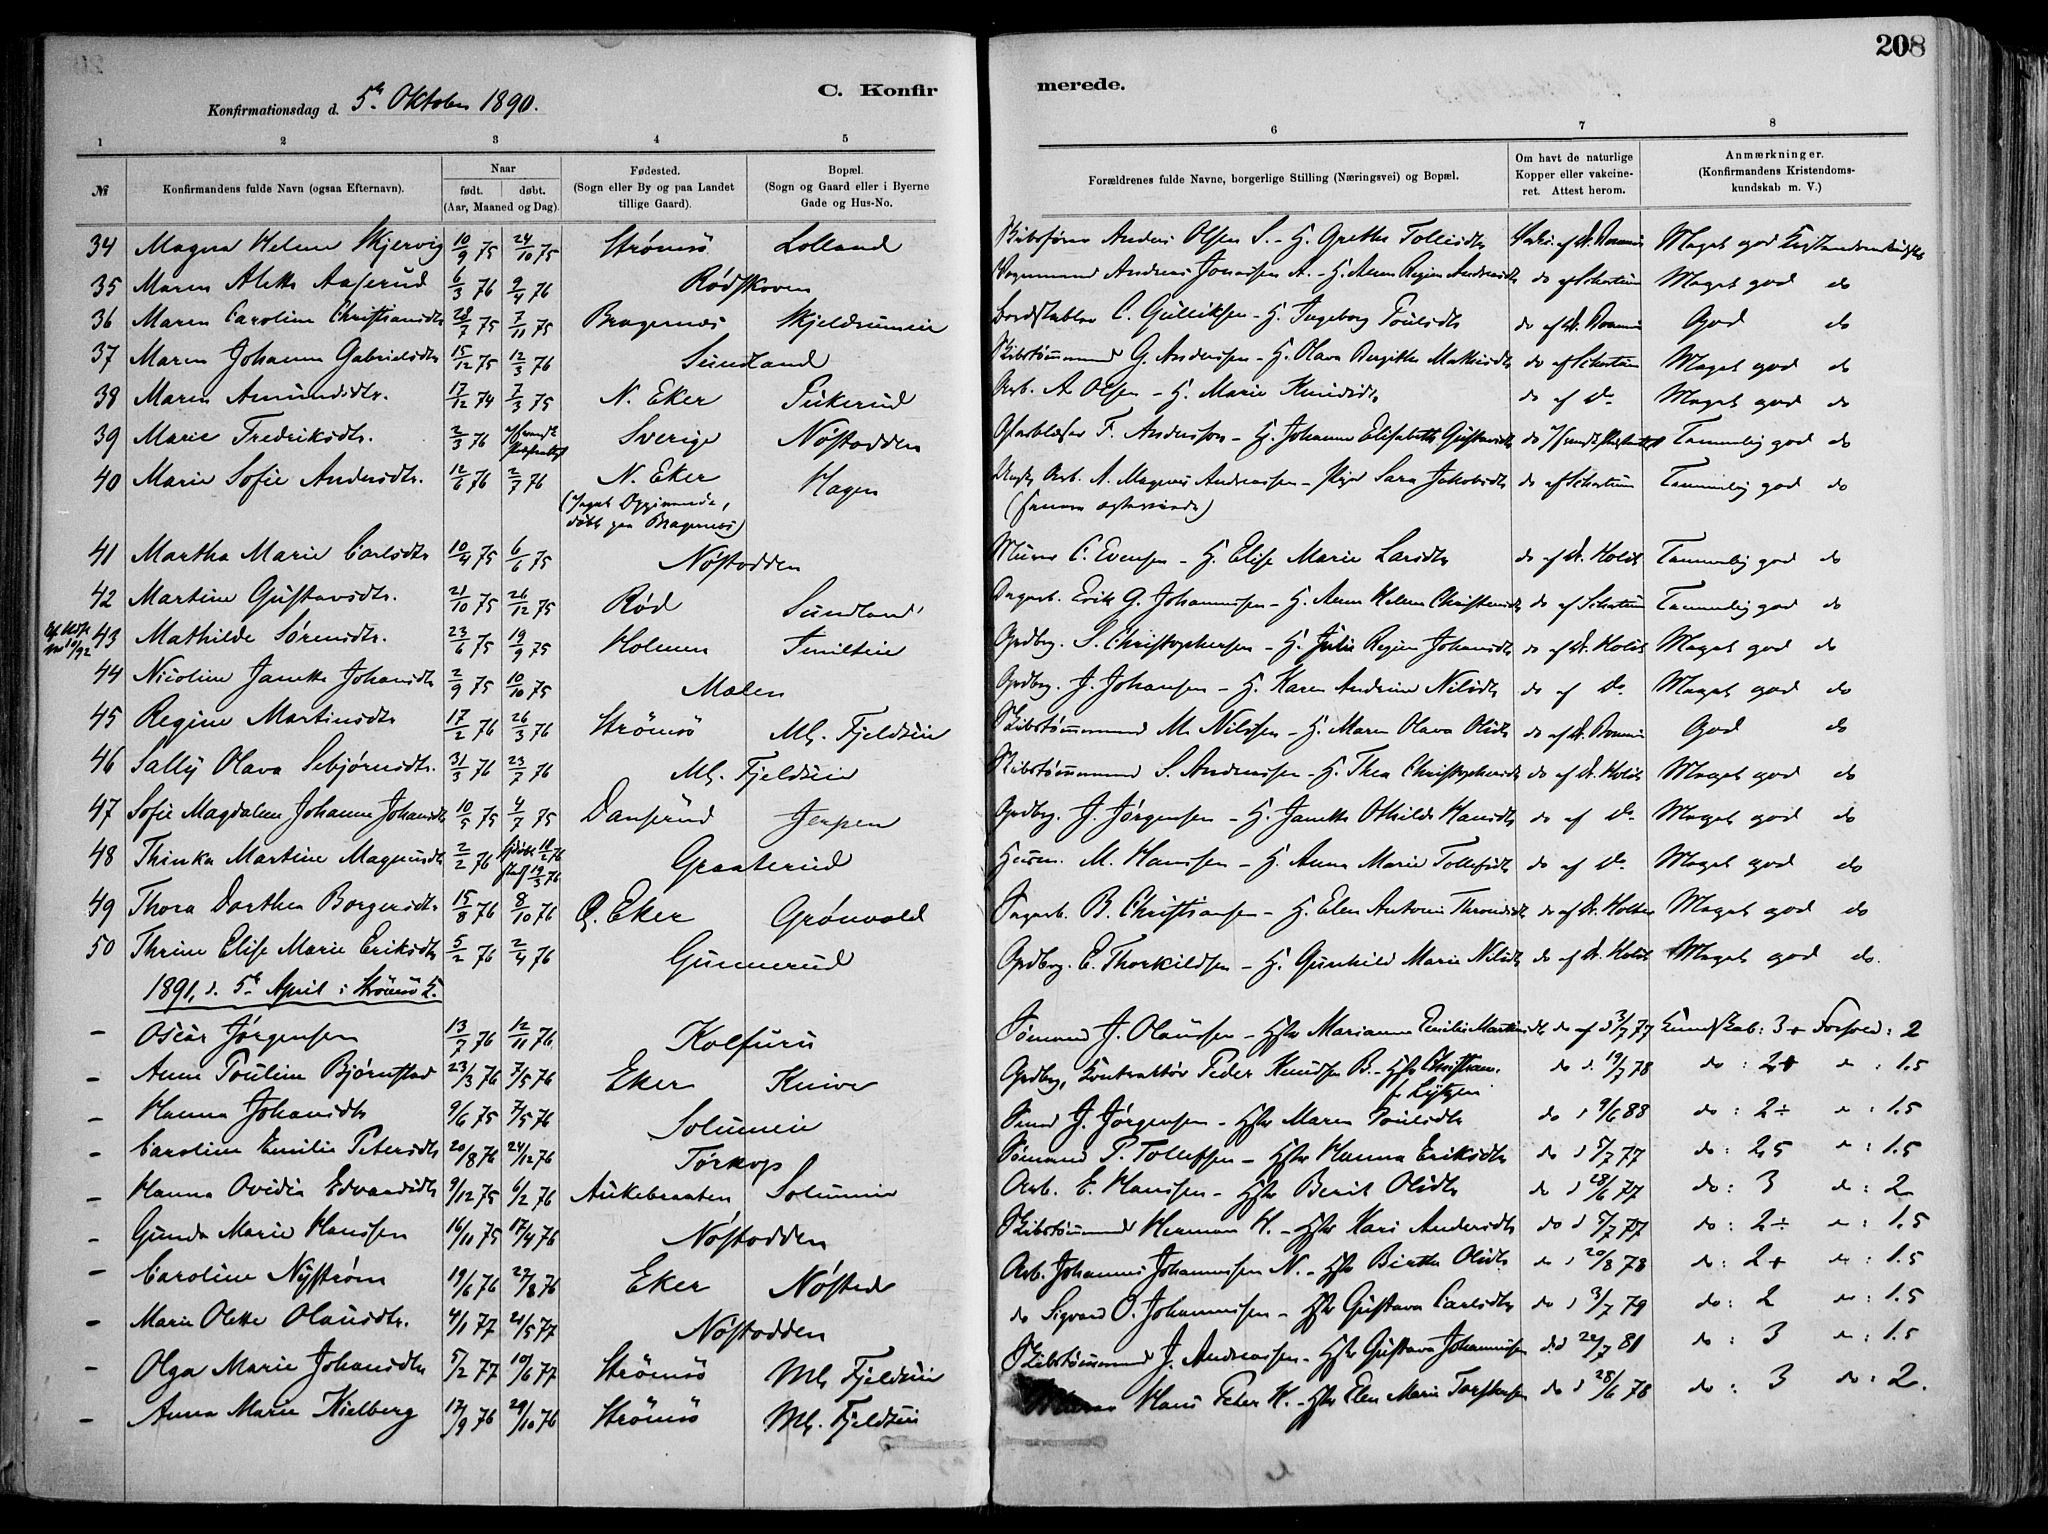 208
C. Konfirmerede.
Konfirmationsdag d. 5te Oktober 1890.
1 2 3 4 5 6 7 8
№ Konfirmandens fulde Navn (ogsaa Efternavn). Naar født. døbt. (Aar, Maaned og Dag). Fødested. (Sogn eller By og paa Landet tillige Gaard). Bopæl. (Sogn og Gaard eller i Byerne Gade og Hus-No. Forældrenes fulde Navne, borgerlige Stilling (Næringsvei) og Bopæl. Om havt de naturlige Kopper eller vakcineret. Attest herom. Anmærkninger. (Konfirmandens Kristendomskundskab m. V.)
34 Magna Helene Skjervig 10/9 75 24/10 75 Strømsö Lolland Skibsfører Anders Olsen S. - H. Grethe Tollisdtr Meget god
35 Maren Alette Aaserud 6/3 76 9/4 76 Rødskoven Andreas A. - H. Anne Regine Andreasdtr do af Schartum Meget god do
36 Maren Caroline Christiansdtr 28/7 75 7/11 75 Bragernæs Skjeldrumeie Bordstabler C. Gulliksen - H. Ingeborg Poulsdtr do af Dr. God do
37 Maren Johanne Gabrielsdtr 15/12 75 12/3 76 Sundland Skibstømmermand G. Andersen - H. Olava Birgitte Mathisdtr do af Schartum Meget god do
38 Maren Amundsdtr. 17/12 74 7/3 75 N. Eker Pukerud Arb. A. Olsen - H. Marie Knudsdtr do af Do Meget god do
39 Marie Fredriksdtr. 2/3 76 Sverige Nøstodden F. Andersson - H. Johanne Elisabeth Gustavsdtr do Temmelig god do
40 Marie Sofie Andersdtr. 12/6 76 2/7 76 N. Eker Hagen Ungk. Arb. A. Magnus Andreassen - Pige Sara Jakobsdtr do af Schartum Temmelig god do
(Ifgl Opgivende, døbt paa Bragernes) (senere ægteviede)
41 Martha Marie Carlsdtr 10/4 75 6/6 75 Nøstodden Murer C. Evensen - H. Elise Marie Larsdtr do af Dr. Holst Temmelig god do
42 Martine Gustavsdtr. 21/10 75 26/12 75 Rød Sundland Dagarb. Erik G. Johannesen - H. Anne Helene Christensdtr do af Schartum Temmelig god do
43 Mathilde Sørensdtr. 23/6 75 19/9 75 Holmen Tmilteie Grdbrg. S. Christophersen - H. Julie Regine Johansdtr do af Dr. Holst Meget god do
44 Nicoline Janette Johansdtr 2/9 75 10/10 75 Mælen Grdbrg. J. Johansen - H. Karen Andrine Nilsdtr do af Do Meget god do
45 Regine Martinsdtr 17/2 76 26/3 76 Strömsö Ml. Fjeldseie Skibstømmermand M. Nilssen - H. Maren Olava Olsdtr do af Dr. God do
46 Sally Olava Sebjørnsdtr. 31/3 76 23/7 76 Ml. Fjeldseie Skibstømmermand S. Andreassen - H. Thea Christophersdtr do af Dr. Holst Meget god do
47 Sofie Magdalene Johanne Johansdtr 10/5 75 4/7 75 Dansrud Jerpen Grdbrg. J. Jørgensen - H. Janette Othilde Hansdtr do af Do Meget god do
48 Thinka Martine Magnusdtr 2/2 76 19/3 76 Graaterud Husm. M. Hanssen - H. Anne Marie Tollefsdtr do af Do Meget god do
49 Thora Dorthea Borgersdtr 15/8 76 8/10 76 Ø. Eker Grønvold Dagarb. B. Christiansen - H. Elen Antonie Throndsdtr do af Dr. Meget god do
50 Thrine Elise Marie Eriksdtr 5/2 76 2/4 76 Gunnerud Grdbrg. E. Thorkildsen - H. Gunhild Marie Nilsdtr do af Dr. Holst Meget god do.
1891, d. 5te April i Strömsö K.
- Oscar Jørgensen 13/7 76 12/11 76 Kolfuru Sømand J. Olaussen - Hstr Marianne Emilie Martinsdtr do af d 3/7 77 Kundskab: 3+ Forhold: 2
- Anne Pouline Bjørnstad 23/3 76 7/5 76 Eker Knive Grdbrg, Kontraktør Peder Knudsen B. - Hstr Christiane f. Lytzen do d. 19/7 78 do: 2+ do: 1.5
- Hanna Johansdtr 9/6 75 7/5 76 Solumeie J. Jørgensen - Hstr Maren Poulsdtr do d 9/6 88 do: 2÷ do: 1.5
- Caroline Emilie Petersdtr 20/8 76 24/12 76 Tørkop Sømand P. Tollefsen - Hstr Hanna Eriksdtr do d 5/7 77 do: 2,5 do: 1.5
- Hanna Ovidia Edvardsdtr 9/12 75 6/2 76 Aukebraaten Solumeie Arb. E. Hanssen - Hstr Berit Olsdtr do d 28/6 77 do: 3 do: 2
- Gunda Marie Hanssen 16/11 75 17/4 76 Nøstodden Skibstømmermand Herman H. - Hstr Kari Andersdtr do d 5/7 77 do: 2÷ do: 1.5
- Caroline Nystrøm 19/6 76 27/8 76 Eker Nøsted Arb. Johannes Johannessen N. - Hstr Birthe Olsdtr do d 20/8 78 do: 2+ do: 1.5
- Marie Olette Olausdtr. 4/1 77 21/5 77 Nøstodden do Sigvard O. Johannessen - Hstr Gustava Carlsdtr do d 3/7 79 do: 2 do: 1.5
- Olga Marie Johansdtr 5/2 77 10/6 77 Strömsö Ml. Fjeldseie Skibstømmermand J. Andreassen - Hstr Gustava Johannessen do d 22/7 81 do: 3 do: 1.5
- Anna Marie Kielberg 17/9 76 29/10 76 Strömsö Ml. Fjeldseie Hans Peter K. - Hstr Elen Marie Torstensen do d 28/6 78 do: 3 do: 2.